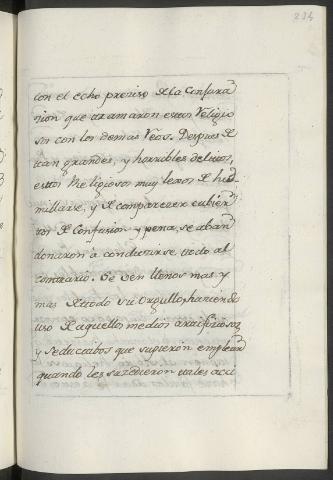 234
con el echo preciso de la Conjura
sion que tramaron estos Religio
sos con los demas Reos. Despues de
tan grandes, y horribles delitos,
estos Religiosos muy lexos de hu
millarse, y de comparecer cubier
tos de Confusion, y pena, se aban
donaron à conducirse todo al
contrario. Se ven llenos mas, y
mas de todo su Orgullo, haciendo
uso de aquellos medios artificiosos,
y seductibos que supieron emplear
quando les suzedieron tales acu